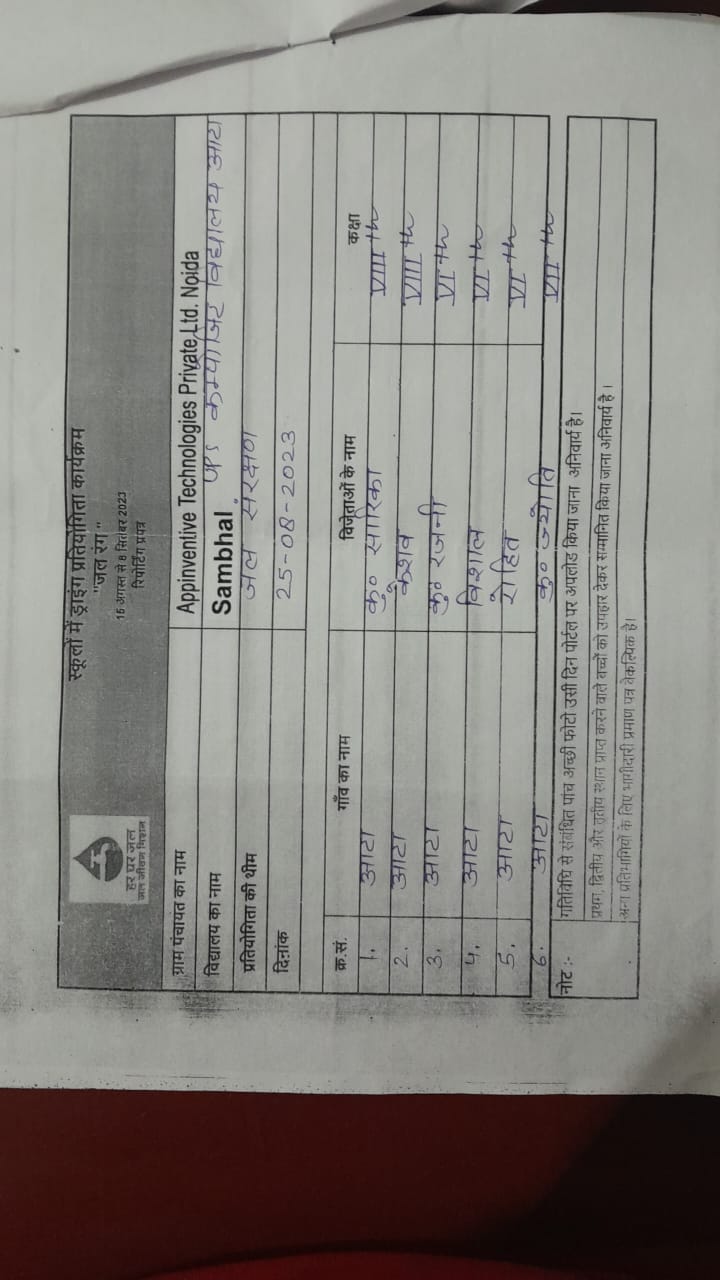 स्कूलों में ड्राइंग प्रतियोगिता कार्यक्रम
"जल रंग"
15 अगस्त से 8 सितंबर 2023
रिपोर्टिंग प्रपत्र
हर घर जल
जल जीवन मिशन
ग्राम पंचायत का नाम Appinventive Technologies Private Ltd. Noida
विद्यालय का नाम Sambhal UPS कम्पोजिट विद्यालय आटा
प्रतियोगिता की थीम जल संरक्षण
दिनांक 25-08-2023
क्र.सं. गाँव का नाम विजेताओं के नाम कक्षा
1. आटा कु० सारिका VIII th
2. आटा केशव VIII th
3. आटा कु० रजनी VI th
4. आटा विशाल VI th
5. आटा रोहित VI th
6. आटा कु० ज्योति VII th
नोट :- गतिविधि से संबंधित पांच अच्छी फोटो उसी दिन पोर्टल पर अपलोड किया जाना अनिवार्य है।
प्रथम, द्वितीय और तृतीय स्थान प्राप्त करने वाले बच्चों को उपहार देकर सम्मानित किया जाना अनिवार्य है।
अन्य प्रतिभागियों के लिए भागीदारी प्रमाण पत्र वैकल्पिक है।